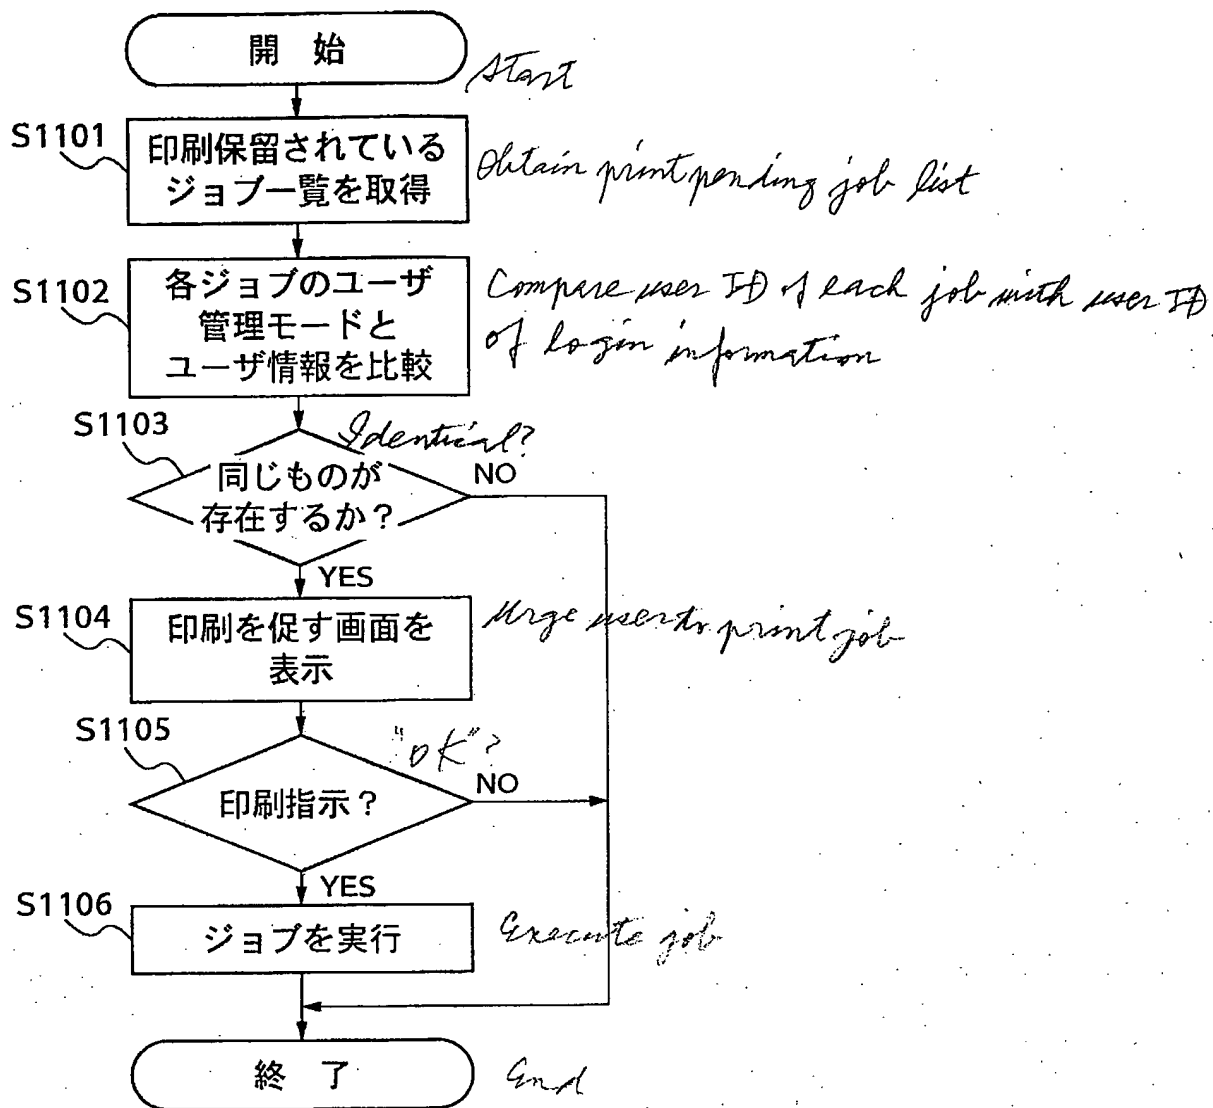 開 始
Start
S1101
印刷保留されている
ジョブ一覧を取得
Obtain print pending job list
S1102
各ジョブのユーザ
管理モードと
ユーザ情報を比較
Compare user ID of each job with user ID
of login information
S1103
Identical?
同じものが
存在するか？
NO
YES
S1104
印刷を促す画面を
表示
Urge user to print job
S1105
"OK"?
印刷指示？
NO
YES
S1106
ジョブを実行
Execute job
終 了
End